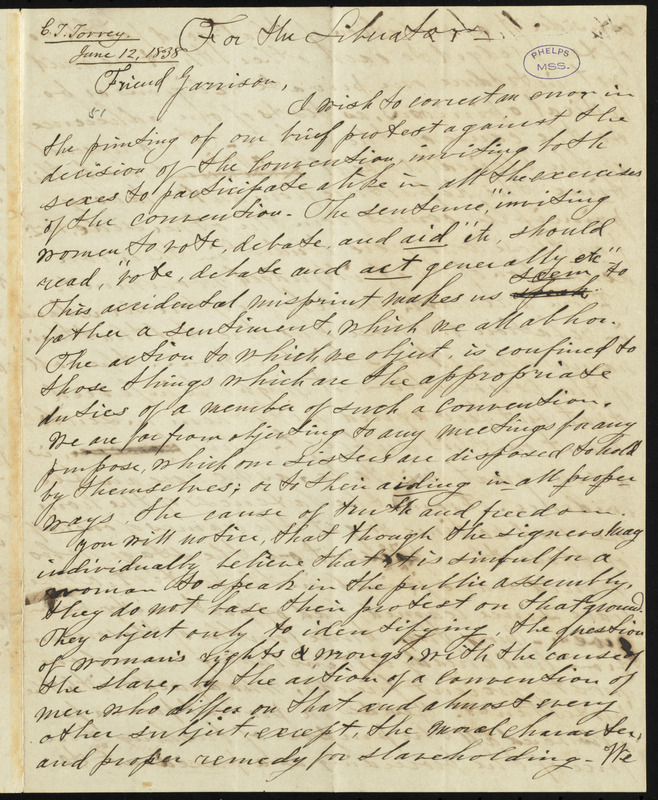 C. T. Torrey.
June 12, 1838
For the Liberator -
PHELPS
MSS.
Friend Garrison,
51
I wish to correct an error in
the printing of our brief protest against the
decision of the Convention, inviting both
sexes to participate alike in all the exercises
of the convention. The sentence, "inviting
women to vote, debate, and aid" &c, should
read, "vote, debate and act generally etc".
This accidental misprint makes us speak seem to
father a sentiment, which we all abhor.
The action to which we object, is confined to
those things which are the appropriate
duties of a member of such a Convention.
We are far from objecting to any meetings for any
purpose, which our Sisters are disposed to hold
by themselves; or to their aiding in all proper
ways, the cause of truth and freedom.
You will notice, that though the signers may
individually believe that it is sinful for a
woman to speak in the public assembly,
they do not base their protest on that ground.
They object only to identifying, the question
of woman's rights & wrongs, with the cause of
the slave, by the action of a convention of
men who differ on that and almost every
other subject, except, the moral character,
and proper remedy for slaveholding - We